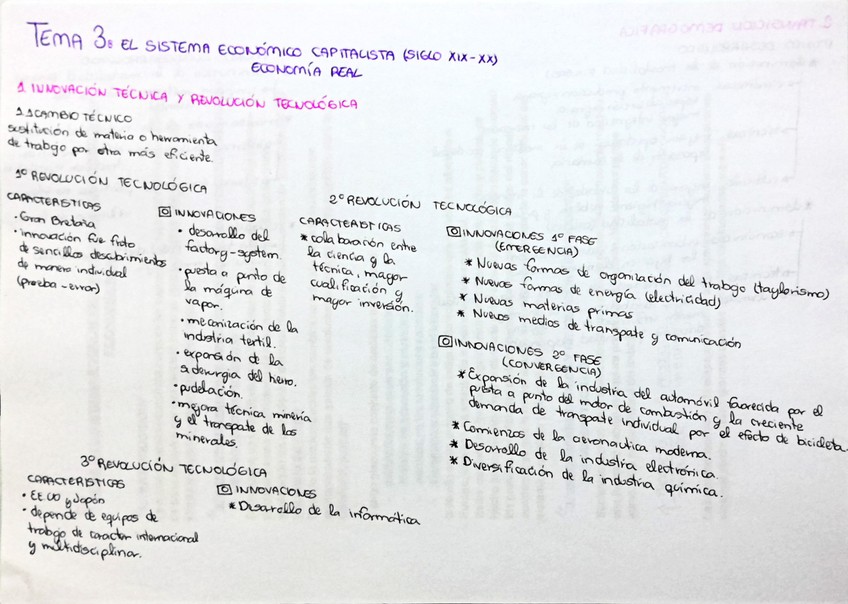 TEMA 3: EL SISTEMA ECONÓMICO CAPITALISTA (SIGLO XIX-XX)
ECONOMÍA REAL
1. INNOVACIÓN TÉCNICA Y REVOLUCIÓN TECNOLÓGICA
1.1 CAMBIO TÉCNICO
sustitución de materia o herramienta
de trabajo por otra más eficiente.
1º REVOLUCIÓN TECNOLÓGICA
CARACTERISTICAS
· Gran Bretaña
· innovación fue fruto
de sencillos descubrimientos
de manera individual
(prueba-error)
INNOVACIONES
· desarrollo del
factory-system.
· puesta a punto de
la máquina de
vapor.
· mecanización de la
industria textil.
· expansión de la
siderurgia del hierro.
· pudelación.
· mejora técnica minería
y el transporte de los
minerales.
2º REVOLUCIÓN TECNOLÓGICA
CARACTERISTICAS
* colaboración entre
la ciencia y la
técnica, mayor
cualificación y
mayor inversión.
INNOVACIONES 1º FASE
(EMERGENCIA)
* Nuevas formas de organización del trabajo (taylorismo)
* Nuevas formas de energía (electricidad)
* Nuevas materias primas
* Nuevos medios de transporte y comunicación
INNOVACIONES 2º FASE
(CONVERGENCIA)
* Expansión de la industria del automóvil favorecida por el
puesta a punto del motor de combustión y la creciente
demanda de transporte individual por el efecto de bicicleta.
* Comienzos de la aeronautica moderna.
* Desarrollo de la industria electrónica.
* Diversificación de la industria química.
3º REVOLUCIÓN TECNOLÓGICA
CARACTERISTICAS
· EEUU y Japón
· depende de equipos de
trabajo de caracter internacional
y multidisciplinar.
INNOVACIONES
* Desarollo de la informática